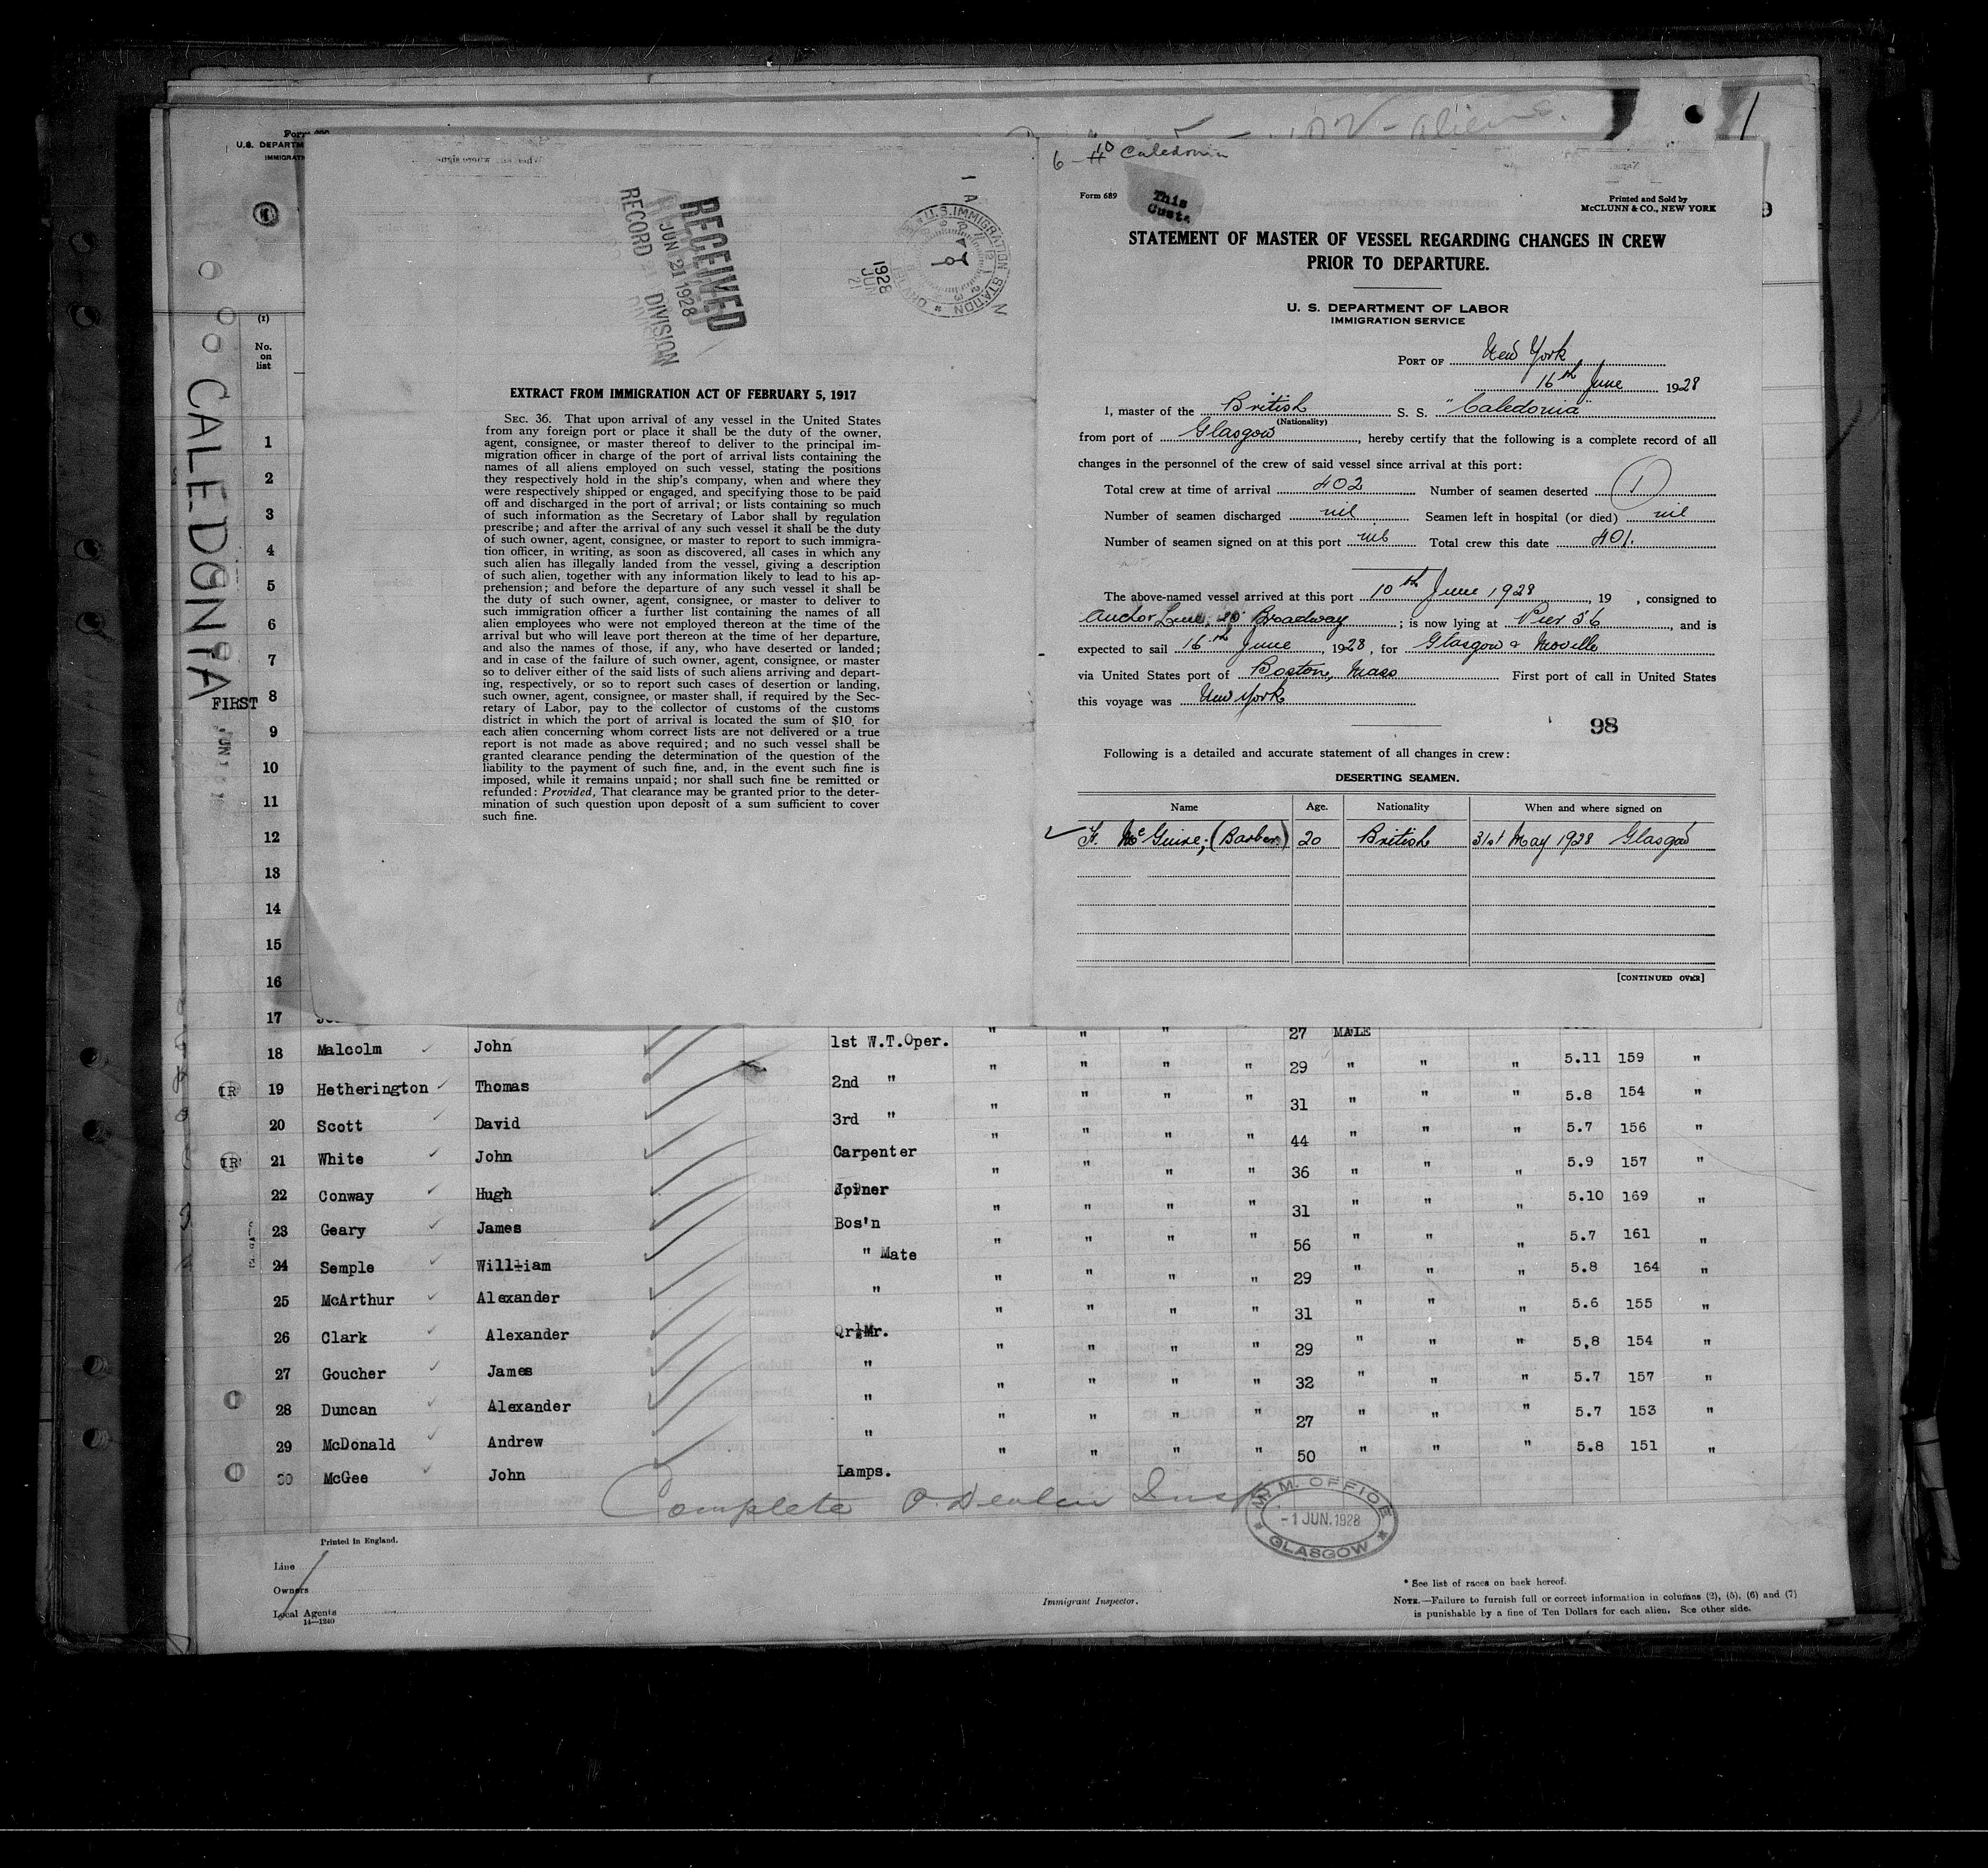 Form
U.S. DEPARTM
IMMIGRATI
1
6 10 Caledonia
CALEDONIA
FIRST
(1)
No.
on
list
1
2
3
4
5
6
7
8
9
10
11
12
13
14
15
16
17
RECEIVED
JUN 21 1928
RECORD DIVISION
U.S. IMMIGRATION STATION
1928
JUN
21
EXTRACT FROM IMMIGRATION ACT OF FEBRUARY 5, 1917
SEC. 36. That upon arrival of any vessel in the United States
from any foreign port or place it shall be the duty of the owner,
agent, consignee, or master thereof to deliver to the principal im-
migration officer in charge of the port of arrival lists containing the
names of all aliens employed on such vessel, stating the positions
they respectively hold in the ship's company, when and where they
were respectively shipped or engaged, and specifying those to be paid
off and discharged in the port of arrival; or lists containing so much
of such information as the Secretary of Labor shall by regulation
prescribe; and after the arrival of any such vessel it shall be the duty
of such owner, agent, consignee, or master to report to such immigra-
tion officer, in writing, as soon as discovered, all cases in which any
such alien has illegally landed from the vessel, giving a description
of such alien, together with any information likely to lead to his ap-
prehension; and before the departure of any such vessel it shall be
the duty of such owner, agent, consignee, or master to deliver to
such immigration officer a further list containing the names of all
alien employees who were not employed thereon at the time of the
arrival but who will leave port thereon at the time of her departure,
and also the names of those, if any, who have deserted or landed;
and in case of the failure of such owner, agent, consignee, or master
so to deliver either of the said lists of such aliens arriving and depart-
ing, respectively, or so to report such cases of desertion or landing,
such owner, agent, consignee, or master shall, if required by the Sec-
retary of Labor, pay to the collector of customs of the customs
district in which the port of arrival is located the sum of $10 for
each alien concerning whom correct lists are not delivered or a true
report is not made as above required; and no such vessel shall be
granted clearance pending the determination of the question of the
liability to the payment of such fine, and, in the event such fine is
imposed, while it remains unpaid; nor shall such fine be remitted or
refunded: Provided, That clearance may be granted prior to the deter-
mination of such question upon deposit of a sum sufficient to cover
such fine.
Form 689
This
Printed and Sold by
McCLUNN & CO., NEW YORK
STATEMENT OF MASTER OF VESSEL REGARDING CHANGES IN CREW
PRIOR TO DEPARTURE.
U. S. DEPARTMENT OF LABOR
IMMIGRATION SERVICE
PORT OF New York
16th June 1928
I, master of the British S. S. "Caledonia"
(Nationality)
from port of Glasgow, hereby certify that the following is a complete record of all
changes in the personnel of the crew of said vessel since arrival at this port:
Total crew at time of arrival 402 Number of seamen deserted 1
Number of seamen discharged nil Seamen left in hospital (or died) nil
Number of seamen signed on at this port nil Total crew this date 401.
The above-named vessel arrived at this port 10th June 1928, 19 , consigned to
Anchor Line, Broadway; is now lying at Pier 56, and is
expected to sail 16th June, 1928, for Glasgow & Moville
via United States port of Boston, Mass First port of call in United States
this voyage was New York
98
Following is a detailed and accurate statement of all changes in crew:
DESERTING SEAMEN.
Name Age. Nationality When and where signed on
F. McGuire, (Barber) 20 British 31st May 1928 Glasgow
[CONTINUED OVER]
27 MALE
18 Malcolm John 1st W.T.Oper. " " " " 29 " " " 5.11 159 "
IR 19 Hetherington Thomas 2nd " " " " " 31 " " " 5.8 154 "
20 Scott David 3rd " " " " " 44 " " " 5.7 156 "
IR 21 White John Carpenter " " " " 36 " " " 5.9 157 "
22 Conway Hugh Joiner " " " " 31 " " " 5.10 169 "
23 Geary James Bos'n " " " " 56 " " " 5.7 161 "
24 Semple William " Mate " " " " 29 " " " 5.8 164 "
25 McArthur Alexander " " " " " 31 " " " 5.6 155 "
26 Clark Alexander Qr.Mr. " " " " 29 " " " 5,8 154 "
27 Goucher James " " " " " 32 " " " 5.7 157 "
28 Duncan Alexander " " " " " 27 " " " 5.7 153 "
29 McDonald Andrew " " " " " 50 " " " 5.8 151 "
30 McGee John Lamps.
Complete
M. M. OFFICE
-1 JUN. 1928
GLASGOW
Printed in England.
Line
Owners
Local Agents
14—1240
Immigrant Inspector.
* See list of races on back hereof.
NOTE.—Failure to furnish full or correct information in columns (2), (5), (6) and (7)
is punishable by a fine of Ten Dollars for each alien. See other side.